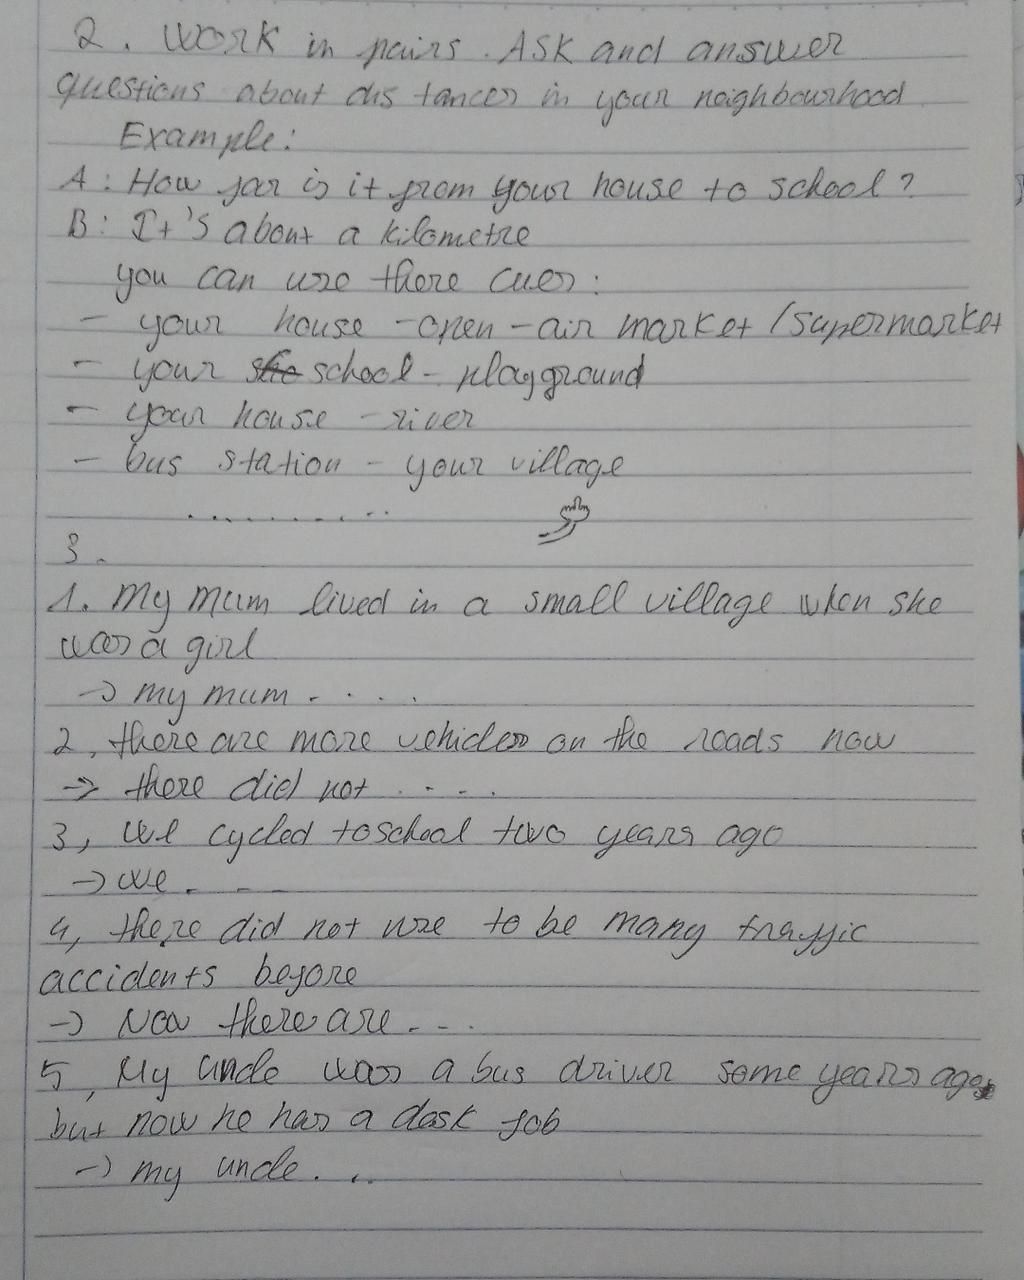 2. Work in pairs. Ask and answer
questions about dis tances in your neighbourhood
Example:
A: How far is it from your house to school?
B: It's about a kilometre
you can use these cues:
- your house - open - air market / supermarket
- your school - playground
- your house - river
- bus station - your village
..........
3.
1. My mum lived in a small village when she
was a girl
-> my mum . . . .
2, there are more vehicles on the roads now
-> there did not . . . .
3, we cycled to school two years ago
-> we . - -
4, there did not use to be many traffic
accidents before
-> Now there are . - - .
5, My uncle was a bus driver some years ago,
but now he has a desk job
-> my uncle . . .